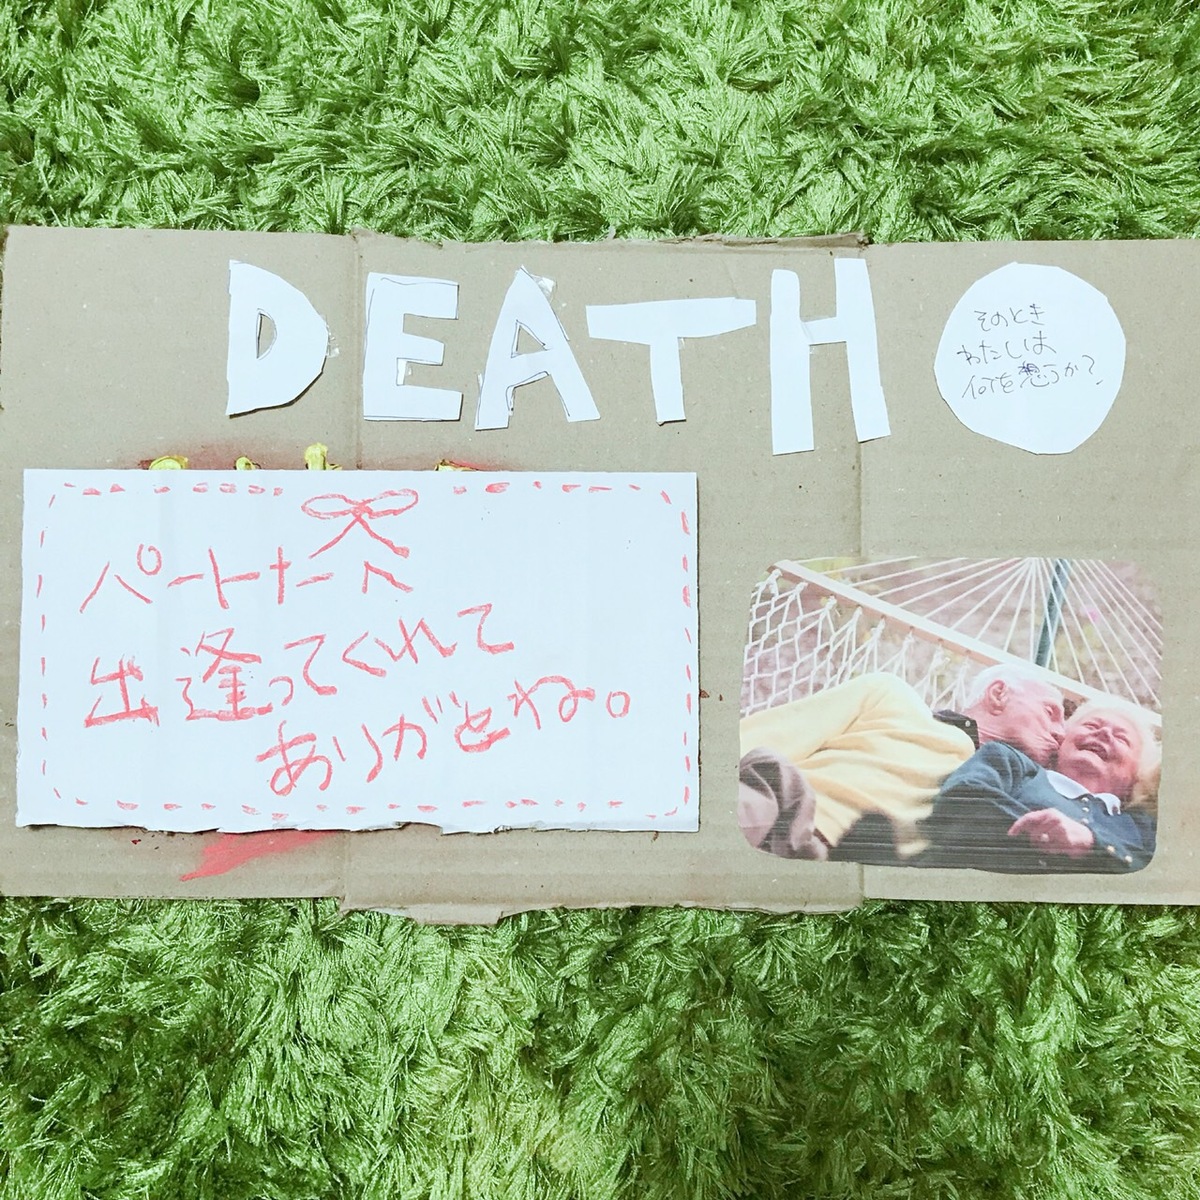 DEATH
そのとき
わたしは
何を想うか?
パートナーへ
出逢ってくれて
ありがとね。